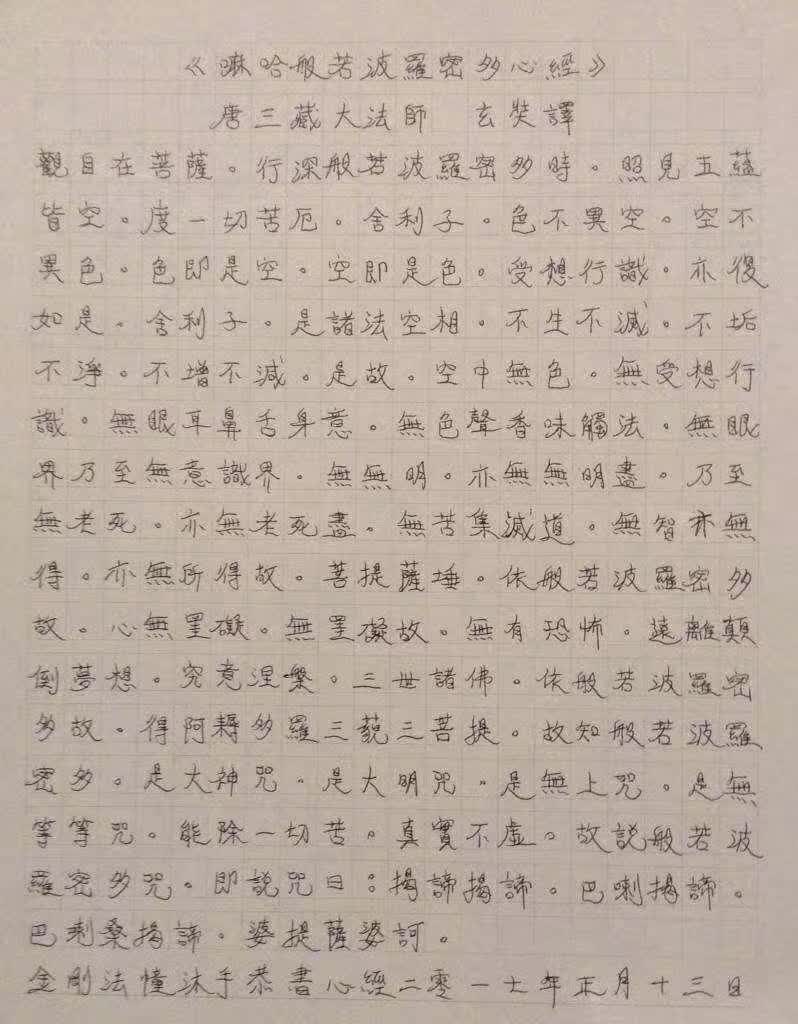 《嘛哈般若波羅密多心經》
唐三藏大法師 玄奘譯
觀自在菩薩。行深般若波羅密多時。照見五蘊
皆空。度一切苦厄。舍利子。色不異空。空不
異色。色即是空。空即是色。受想行識。亦復
如是。舍利子。是諸法空相。不生不滅。不垢
不淨。不增不減。是故。空中無色。無受想行
識。無眼耳鼻舌身意。無色聲香味觸法。無眼
界乃至無意識界。無無明。亦無無明盡。乃至
無老死。亦無老死盡。無苦集滅道。無智亦無
得。亦無所得故。菩提薩埵。依般若波羅密多
故。心無罣礙。無罣礙故。無有恐怖。遠離顛
倒夢想。究竟涅槃。三世諸佛。依般若波羅密
多故。得阿耨多羅三藐三菩提。故知般若波羅
密多。是大神咒。是大明咒。是無上咒。是無
等等咒。能除一切苦。真實不虛。故說般若波
羅密多咒。即說咒曰：揭諦揭諦。巴喇揭諦。
巴喇桑揭諦。婆提薩婆訶。
金剛法幢沐手恭書心經二零一七年正月十三日